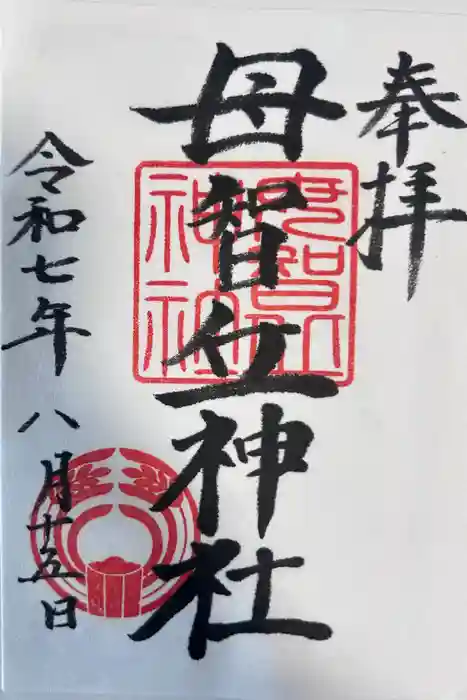 奉拝
母智丘神社
母智丘
神社
令和七年八月十五日